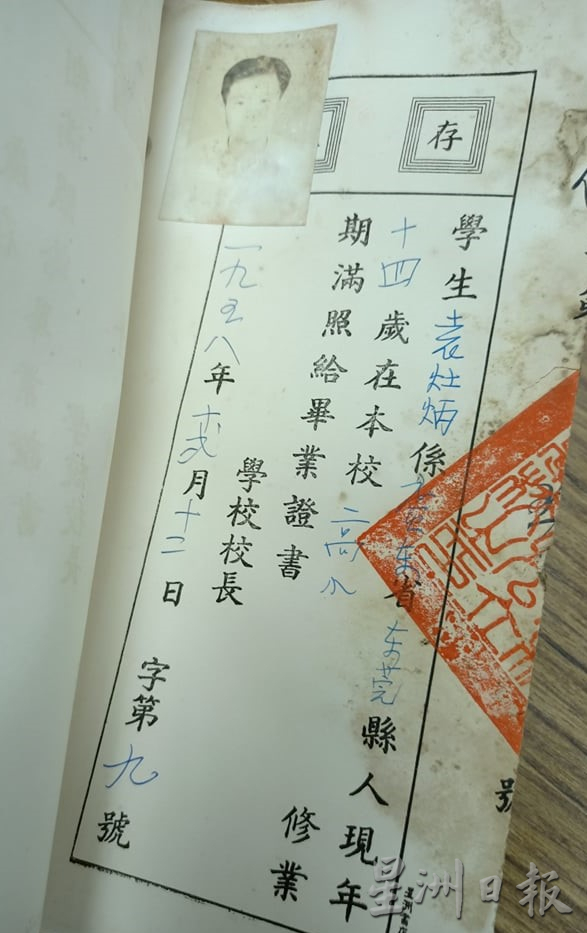 存
學生袁灶炳係廣东省东莞縣人現年
十四歲在本校高小修業
期滿照給畢業證書
學校校長
一九五八年十弍月十二日
字第九號
號
星洲日報